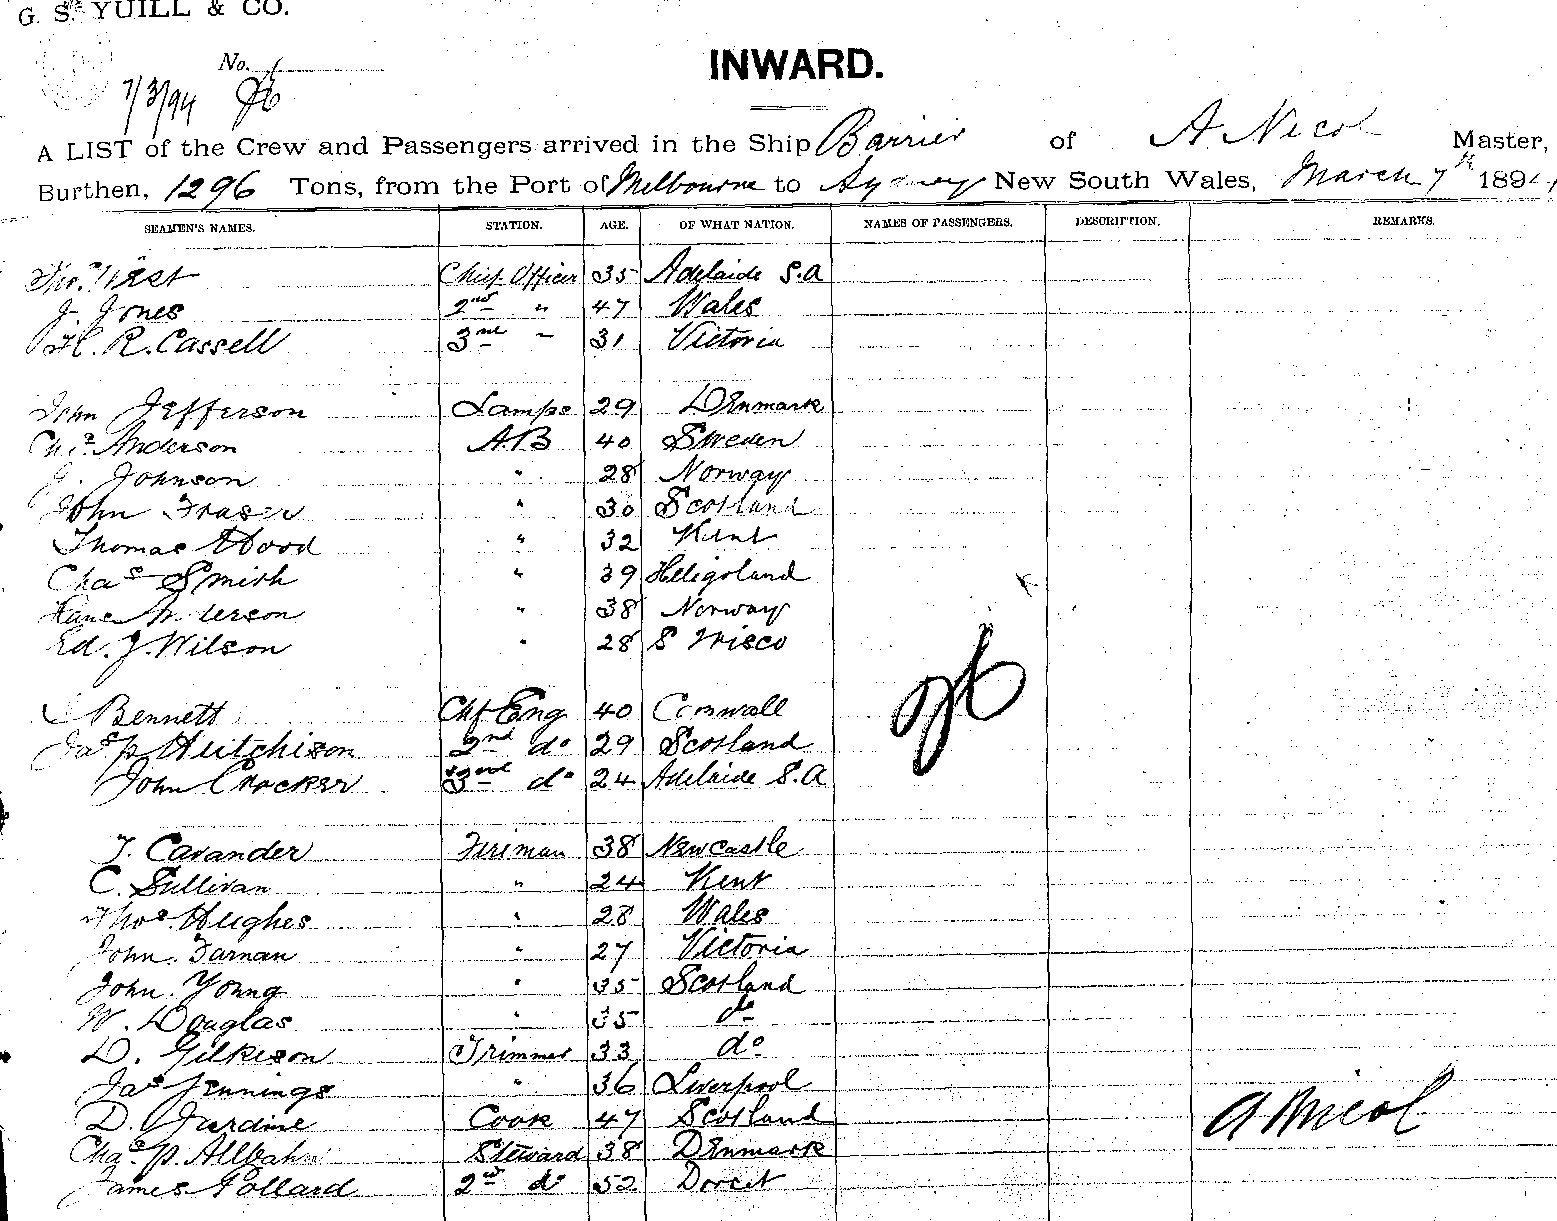 G. S. YUILL & CO.
No. 1
7/3/94
INWARD.
A LIST of the Crew and Passengers arrived in the Ship Barrier of A Nicol Master,
Burthen, 1296 Tons, from the Port of Melbourne to Sydney New South Wales, March 7th 1894,
SEAMEN'S NAMES. STATION. AGE. OF WHAT NATION. NAMES OF PASSENGERS. DESCRIPTION. REMARKS.
Thos. West Chief Officer 35 Adelaide S.A
J. Jones 2nd " 47 Wales
H. R. Cassell 3rd " 31 Victoria
John Jefferson Lamps 29 Denmark
Chas Anderson A.B 40 Sweden
J. Johnson " 28 Norway
John Fraser " 30 Scotland
Thomas Hood " 32 Kent
Chas Smith " 39 Heligoland
Hans " 38 Norway
Ed. J. Wilson " 28 S Frisco
Bennett Chf Eng 40 Cornwall
Jas P Hutchison 2nd do 29 Scotland
John Crocker 3rd do 24 Adelaide S.A
T. Cavander Fireman 38 Newcastle
C. Sullivan " 24 Kent
Thos. Hughes " 28 Wales
John Farnan " 27 Victoria
John Young " 35 Scotland
W. Douglas " 35 do
D. Gilkison Trimmer 33 do
Jas Jennings " 36 Liverpool
D. Jardine Cook 47 Scotland
Chas. P. Allbahn Steward 38 Denmark
James Pollard 2nd do 52 Dorset
A Nicol